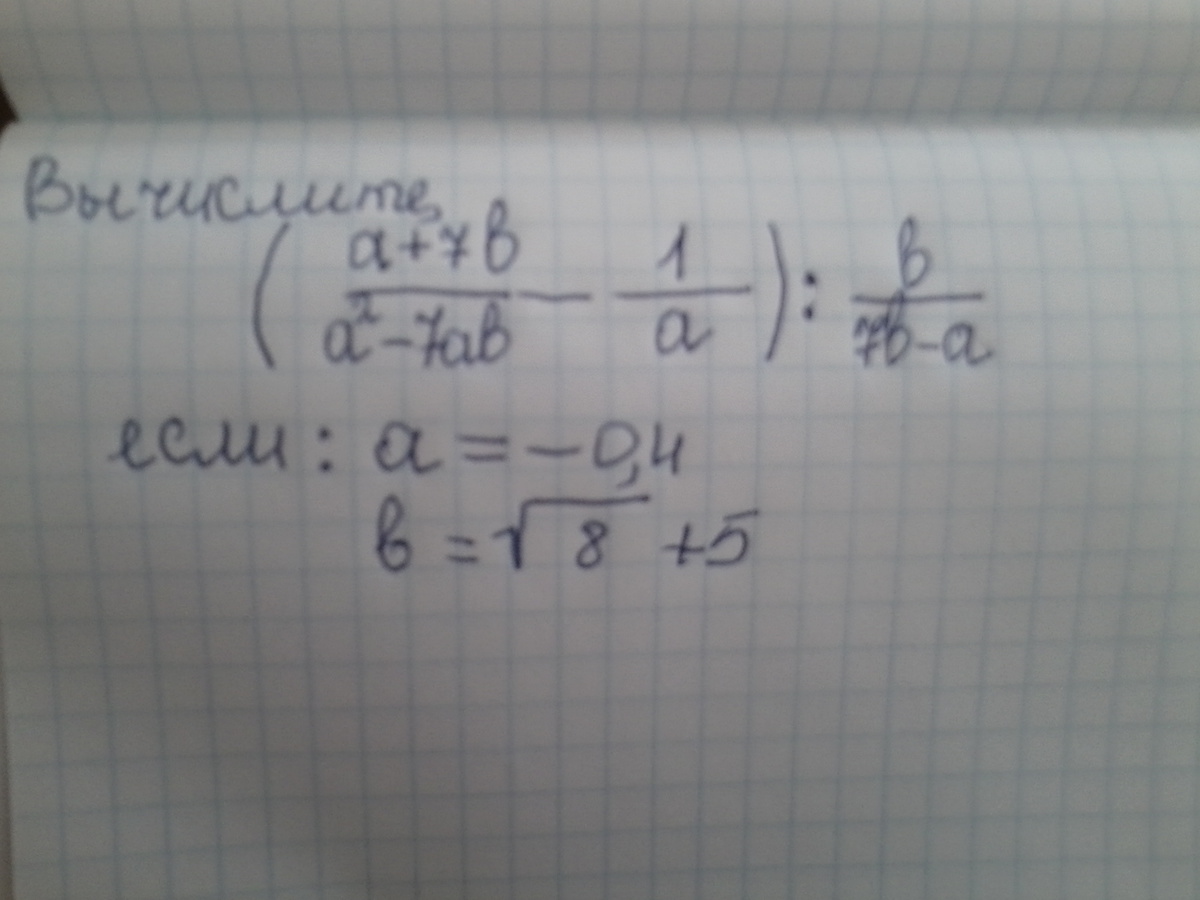 Вычислите
(a+7b / a²-7ab - 1/a) : b / 7b-a
если: a = -0,4
b = √8 +5